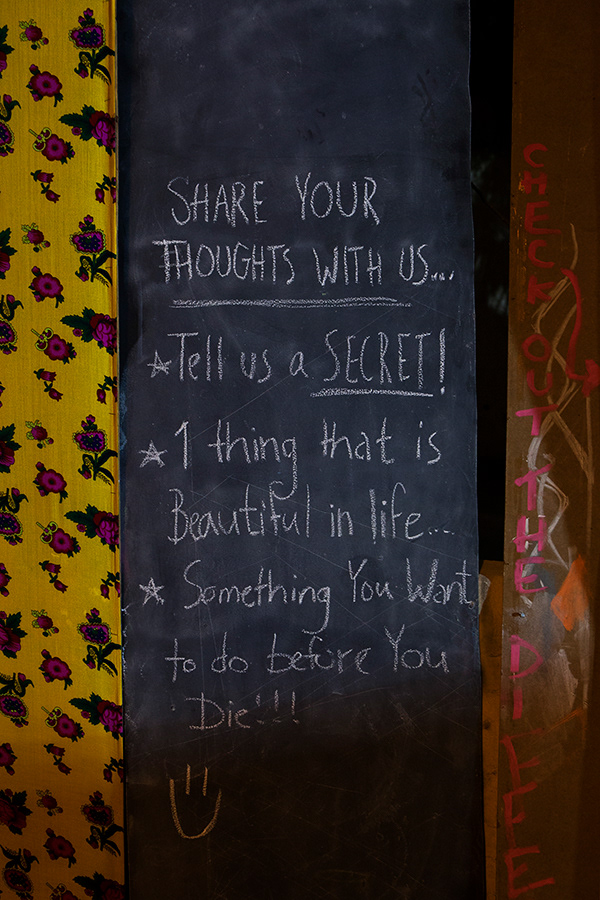 SHARE YOUR
THOUGHTS WITH US...
☆ Tell us a SECRET!
☆ 1 thing that is
Beautiful in life...
☆ Something You Want
to do before You
Die!!!
CHECK OUT THE DIFFE